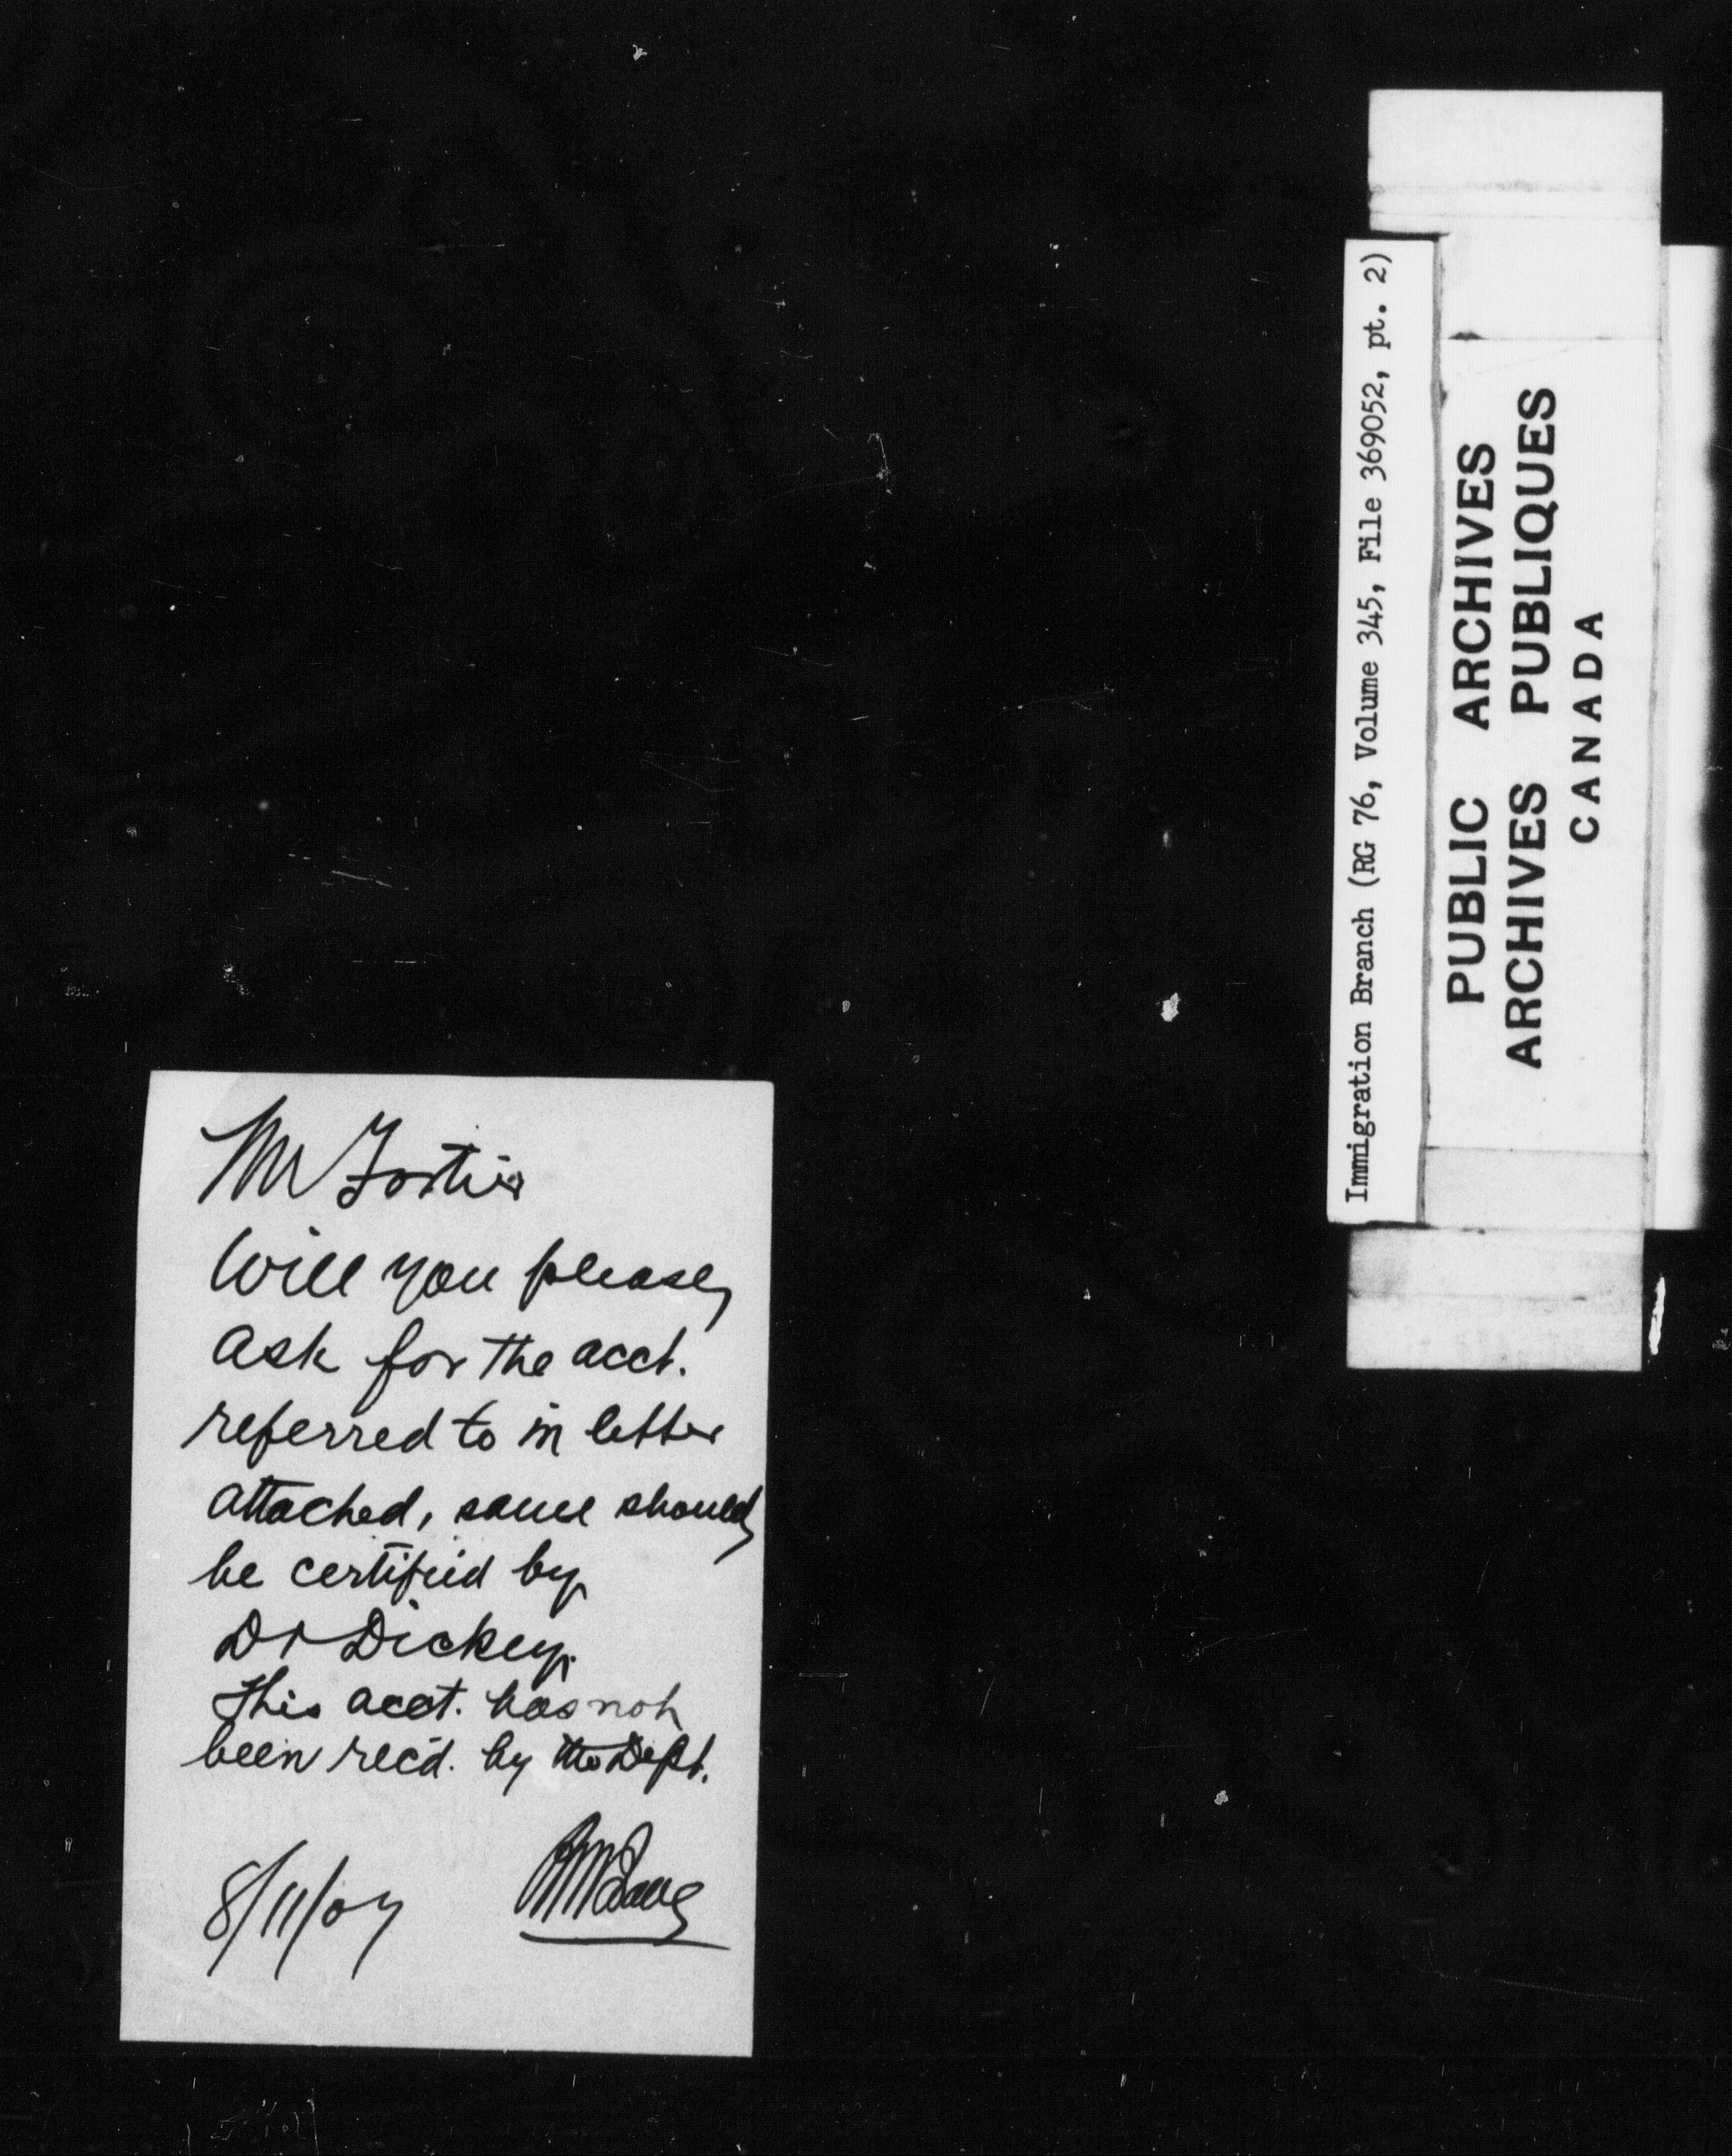 Mr Fortier
Will you please
ask for the acct.
referred to in letter
attached, same should
be certified by
Dr Dickey.
This acct. has not
been rec'd. by the Dept.
8/11/07
Immigration Branch (RG 76, Volume 345, File 369052, pt. 2)
PUBLIC ARCHIVES
ARCHIVES PUBLIQUES
CANADA